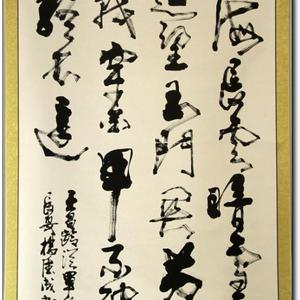 海長雲暗雪
遥望玉門関黄
戰穿金甲不破
終不還
王昌齡從軍
長安楊